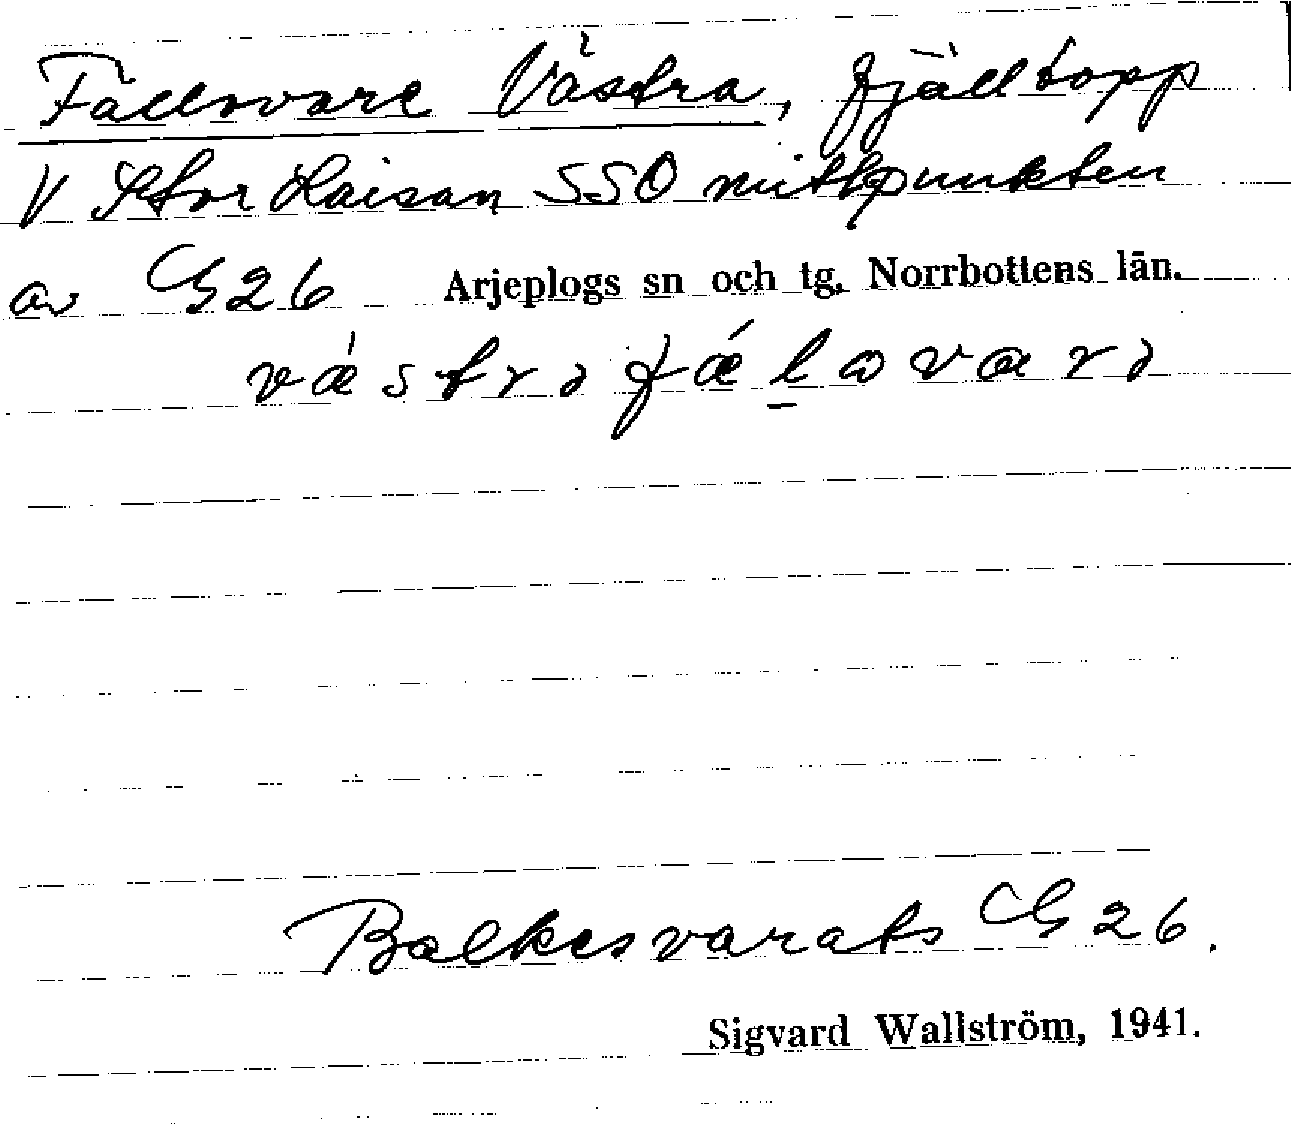 Fällovare Västra, fjälltopp
V Stor Laisan SSO mittpunkten
av G26 Arjeplogs sn och tg. Norrbottens län.
vástrə fǽlovarə
Balkesvarats G26.
Sigvard Wallström, 1941.